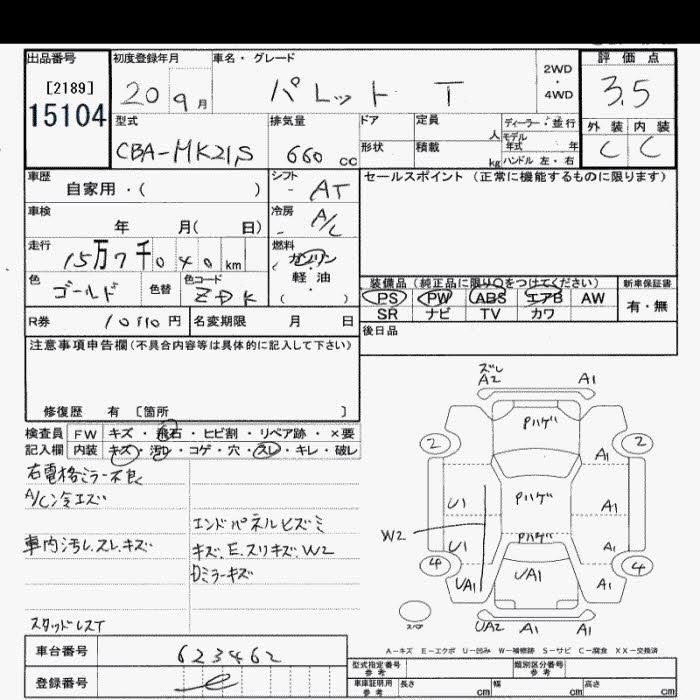 出品番号 初度登録年月 車名・グレード 評価点
[2189] 15104 20 9月 パレット T 2WD・4WD 3.5
型式 排気量 ドア 定員 人 ディーラー・並行 外装 内装
CBA-MK21S 660 cc 形状 積載 kg モデル年式 年 ハンドル 左・右 C C
車歴 自家用・( ) シフト AT セールスポイント (正常に機能するものに限ります)
車検 年 月( 日) 冷房 A/C
走行 15万7千040 km 燃料 ガソリン・軽油 ( )
色 ゴールド 色替 色コード ZDK 装備品 (純正品に限り○をつけてください) 新車保証書
PS PW ABS エアB AW 有・無
SR ナビ TV カワ
R券 10810円 名変期限 月 日 後日品
注意事項申告欄(不具合内容等は具体的に記入して下さい)
修復歴 有 [箇所 ]
検査員 FW キズ・飛石・ヒビ割・リペア跡・×要
記入欄 内装 キズ・汚レ・コゲ・穴・スレ・キレ・破レ
右電格ミラー不良
A/C冷エズ
エンドパネルヒズミ
車内汚レ、スレ、キズ キズ、E、スリキズ、W2
Dミラーキズ
スタッドレスT
ズレ
A2 A1
Pハゲ
2 2
A1
U1 Pハゲ A1
W2
U1 Pハゲ A1
4 4
UA1 UA1 A1
スペア UA2 A1 A1
A-キズ E-エクボ U-凹み W-補修跡 S-サビ C-腐食 XX-交換済
車台番号 623462 型式指定番号 参考 類別区分番号 参考
登録番号 車庫証明用 参考 長さ cm 幅 cm 高さ cm